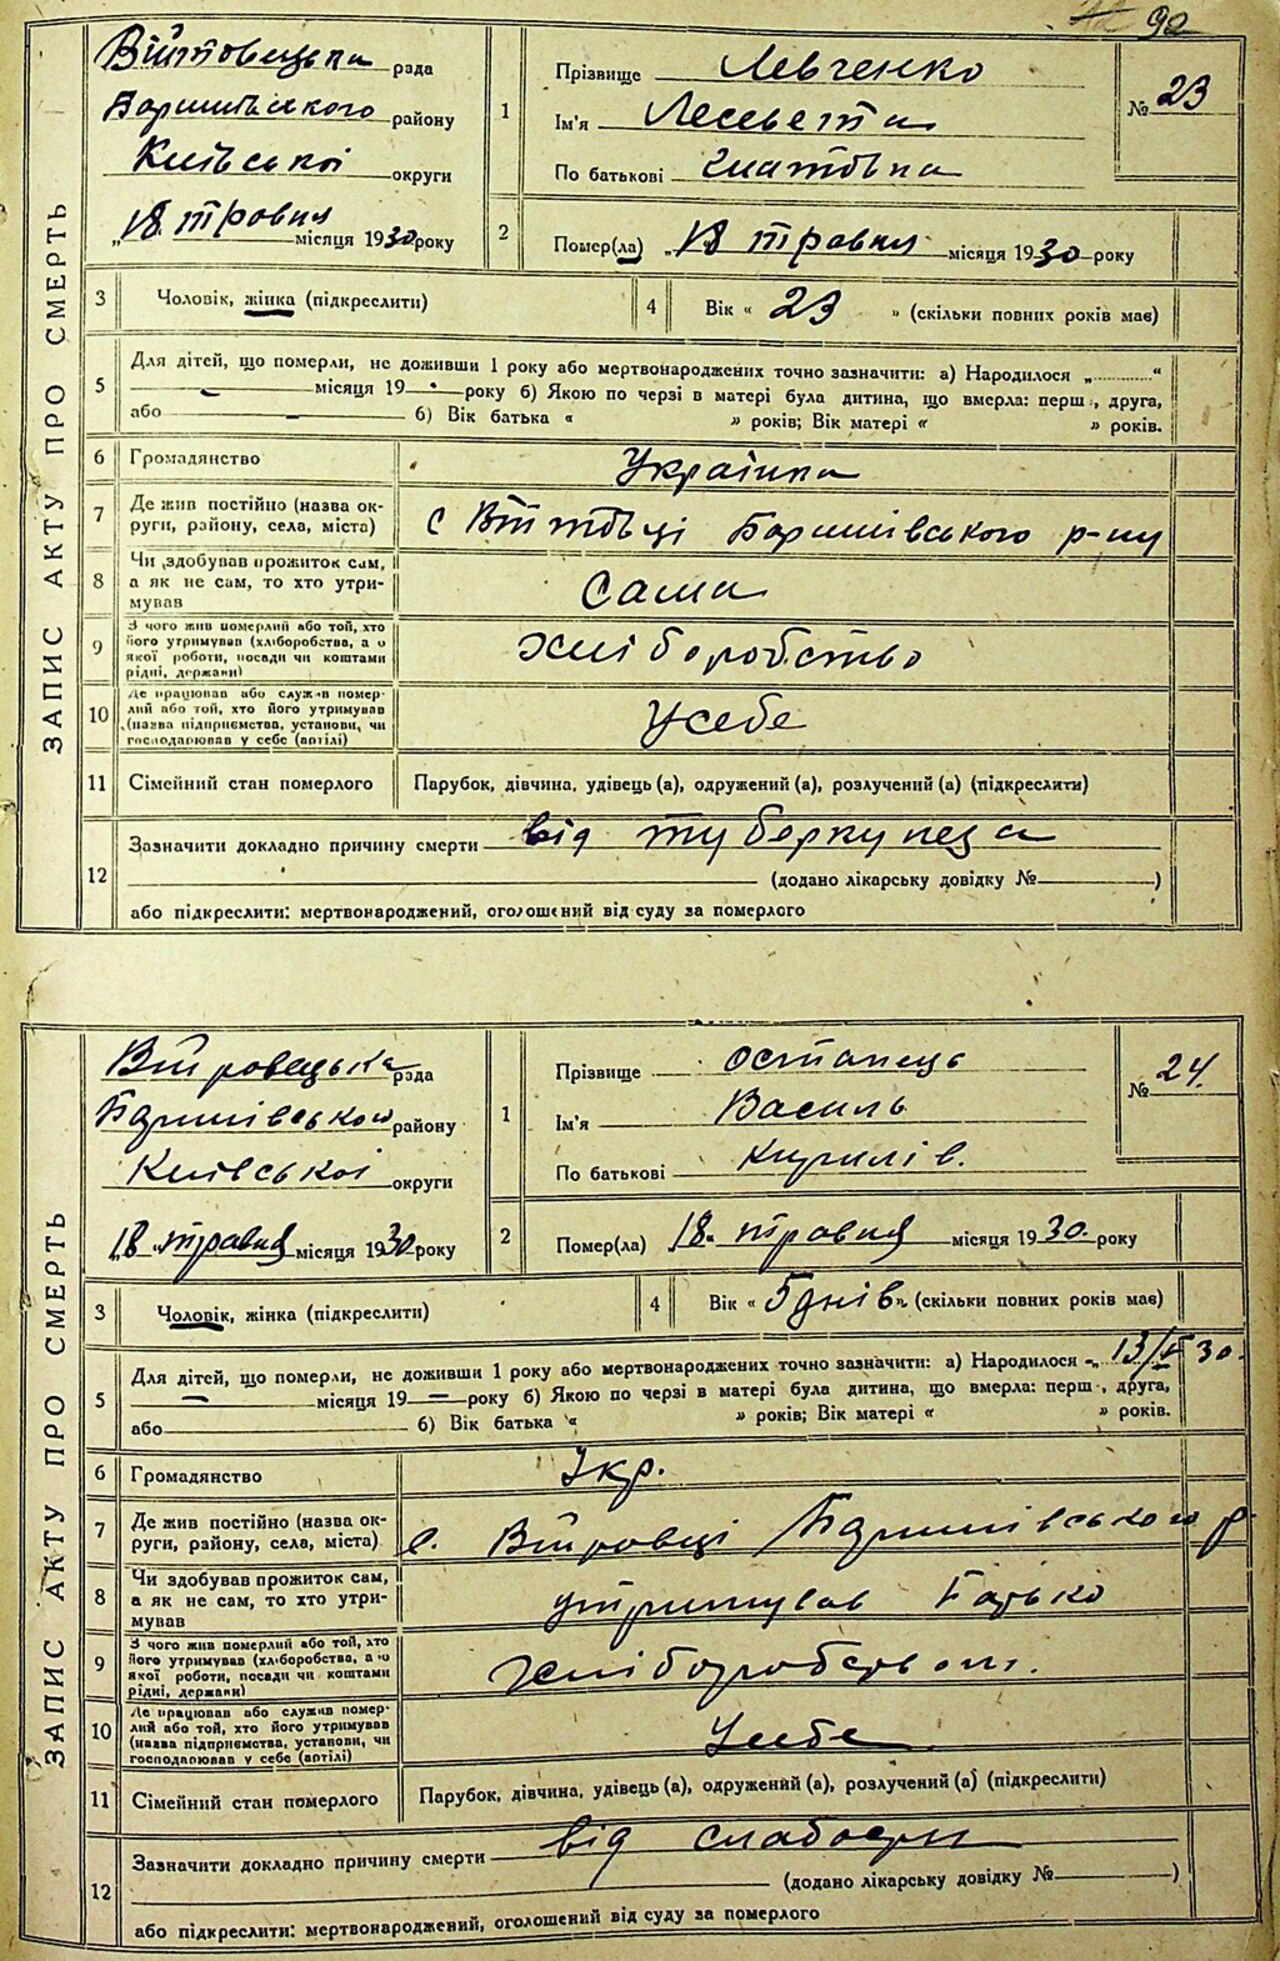 92
ЗАПИС АКТУ ПРО СМЕРТЬ
Війтовецька рада
Баришівського району
Київської округи
„18. травня місяця 1930 року
1
Прізвище Левченко
Ім'я
По батькові Гнатовна
№ 23
2
Помер(ла) „18 травня місяця 1930 року
3 Чоловік, жінка (підкреслити)
4 Вік « 23 » (скільки повних років має)
5 Для дітей, що померли, не доживши 1 року або мертвонароджених точно зазначити: а) Народилося „ “
місяця 19 року б) Якою по черзі в матері була дитина, що вмерла: перш , друга,
або 6) Вік батька « » років; Вік матері « » років.
6 Громадянство Українка
7 Де жив постійно (назва ок-
руги, району, села, міста) с Війтовці Баришівського р-ну
8 Чи здобував прожиток сам,
а як не сам, то хто утри-
мував Сама
9 З чого жив померлий або той, хто
його утримував (хліборобства, а о
якої роботи, посади чи коштами
рідні, держави) хліборобство
10 Де працював або служив помер-
лий або той, хто його утримував
(назва підприємства, установи, чи
господарював у себе (артілі) У себе
11 Сімейний стан померлого Парубок, дівчина, удівець (а), одружений (а), розлучений (а) (підкреслити)
12 Зазначити докладно причину смерти від туберкулеза
(додано лікарську довідку № )
або підкреслити: мертвонароджений, оголошений від суду за померлого
ЗАПИС АКТУ ПРО СМЕРТЬ
рада
Баришівського району
Київської округи
„18 „ травня місяця 1930 року
1
Прізвище Остапець
Ім'я Василь
По батькові Кирилів.
№ 24.
2
Помер(ла) „18„ травня місяця 1930. року
3 Чоловік, жінка (підкреслити)
4 Вік « 5 днів „ (скільки повних років має)
5 Для дітей, що померли, не доживши 1 року або мертвонароджених точно зазначити: а) Народилося „ 13/V 30.
місяця 19 року б) Якою по черзі в матері була дитина, що вмерла: перш , друга,
або 6) Вік батька « » років; Вік матері « » років.
6 Громадянство Укр.
7 Де жив постійно (назва ок-
руги, району, села, міста) с. Баришівського р.
8 Чи здобував прожиток сам,
а як не сам, то хто утри-
мував утримував батько
9 З чого жив померлий або той, хто
його утримував (хліборобства, а о
якої роботи, посади чи коштами
рідні, держави)
10 Де працював або служив помер-
лий або той, хто його утримував
(назва підприємства, установи, чи
господарював у себе (артілі) У себе
11 Сімейний стан померлого Парубок, дівчина, удівець (а), одружений (а), розлучений (а) (підкреслити)
12 Зазначити докладно причину смерти від слабости
(додано лікарську довідку № )
або підкреслити: мертвонароджений, оголошений від суду за померлого